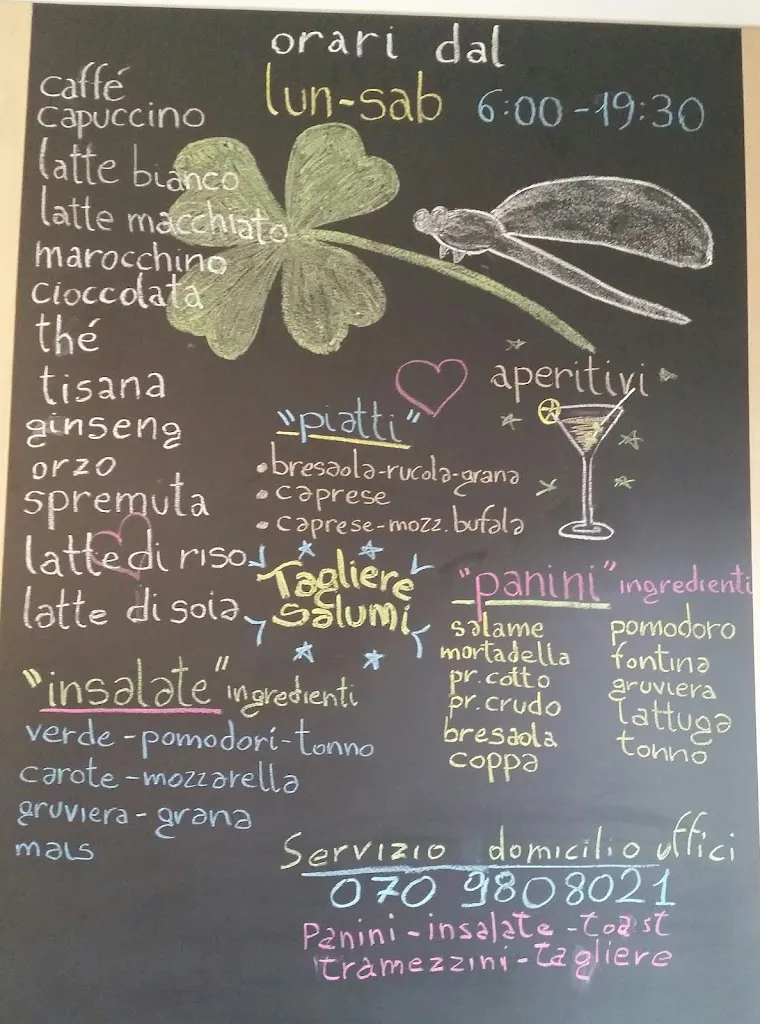 orari dal
lun-sab 6:00-19:30
caffé
capuccino
latte bianco
latte macchiato
marocchino
cioccolata
thé
tisana
ginseng
orzo
spremuta
latte di riso
latte di soia
aperitivi
"piatti"
•bresaola-rucola-grana
•caprese
•caprese-mozz.bufala
Tagliere
salumi
"panini" ingredienti
salame
mortadella
pr.cotto
pr.crudo
bresaola
coppa
pomodoro
fontina
gruviera
lattuga
tonno
"insalate" ingredienti
verde-pomodori-tonno
carote-mozzarella
gruviera-grana
mais
Servizio domicilio uffici
070 9808021
Panini-insalate-toast
tramezzini-tagliere